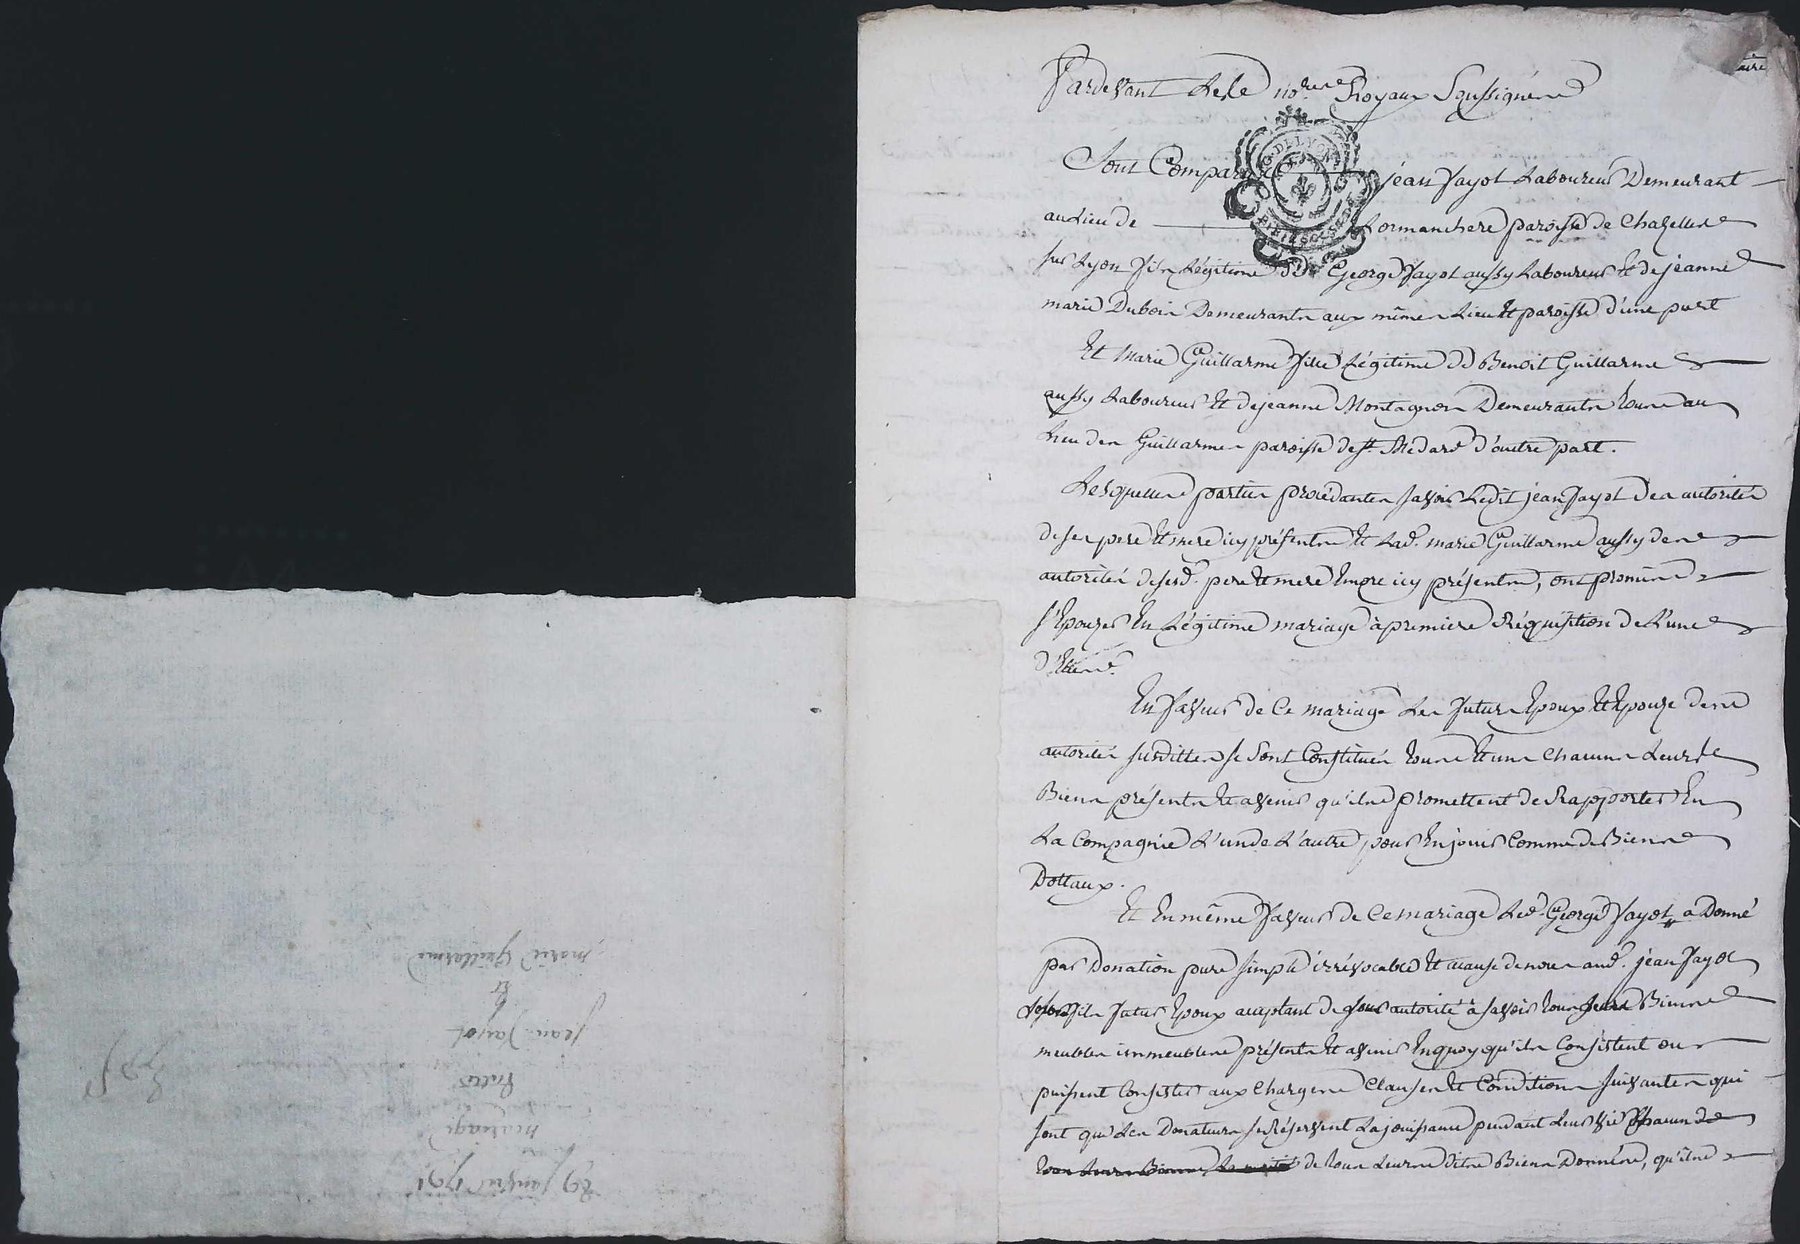 Pardevant Les no.res Royaux Soussignés
G. DE LYON
Sont Comparus jéan fayot Laboureur Demeurant
au Lieu de Lormanchere paroisse de Chazelles
sur Lyon fils Légitime de George fayot aussy Laboureur Et de jéanne
marie Dubois Demeurants aux mêmes Lieu Et paroisse d'une part
Et Marie Guillarme fille Légitime de Benoit Guillarme
aussy Laboureur Et de jeanne Montagnon Demeurants tous au
Lieu des Guillarmes paroisse de St. Médard d'autre part.
Lesquelles parties procédantes savoir Ledit jean fayot des autorités
de ses pere Et mere icy présents Et Lad. marie Guillarme aussy des
autorités de sesd. pere Et mere icy présents, ont promis
s'Epouser En Légitime mariage à premiere Réquisition de L'une
d'Elles.
En faveur de Ce mariage Les futurs Epoux Et Epouse des
autorités susdittes se sont Constitués tous Et uns Chacuns Leurs
Biens présents Et avenir qu'ils promettent de Rapporter En
La Compagnie L'un de L'autre pour En jouir Comme de Biens
Dottaux.
Et En même faveur de Ce mariage Led. George fayot a Donné
par Donation pure simple irrévocable Et a cause de noces aud. jean fayot
fils futur Epoux acceptant de autorité à savoir tous ses Biens
meubles immeubles présents Et avenir En quoy qu'ils Consistent ou
puissent Consister aux Charges Clauses Et Conditions suivantes qui
sont que Les Donateurs se Réservent La jouissance pendant Leur vie
de tous Leurs dits Biens Donnés, qu'ils
29 janvier 1791
mariage
Entre
Jean fayot
Et
marie Guillarme